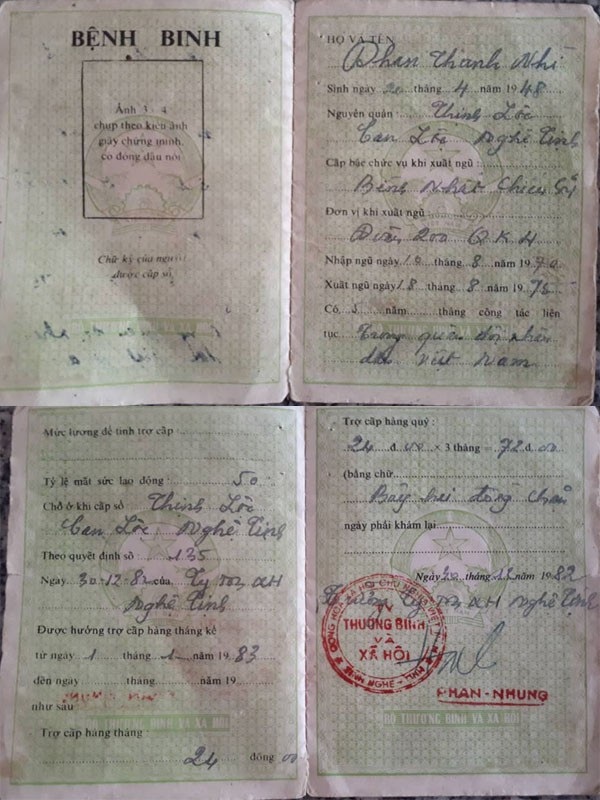 BỆNH BINH
Ảnh 3 . 4
chụp theo kiểu ảnh
giấy chứng minh,
có đóng dấu nổi
Chữ ký của người
được cấp sổ
HỌ VÀ TÊN
Phan Thanh Nhi
Sinh ngày 20 tháng 4 năm 1948
Nguyên quán: Thịnh Lộc
Can Lộc Nghệ Tĩnh
Cấp bậc chức vụ khi xuất ngũ:
Binh Nhất Chiến Sĩ
Đơn vị khi xuất ngũ:
Đoàn 200 QK4
Nhập ngũ ngày 18 tháng 8 năm 1970
Xuất ngũ ngày 18 tháng 8 năm 1975
Có 5 năm tháng công tác liên
tục Trong quân đội nhân
dân việt Nam
Mức lương để tính trợ cấp
Tỷ lệ mất sức lao động: 50
Chỗ ở khi cấp sổ Thịnh Lộc
Can Lộc Nghệ Tĩnh
Theo quyết định số 135
Ngày 30-12-82 của Ty TB XH
Nghệ Tĩnh
Được hưởng trợ cấp hàng tháng kể
từ ngày 1 tháng 1 năm 1983
đến ngày tháng năm 19
như sau
Trợ cấp hàng tháng:
24 đồng 00
Trợ cấp hàng quý:
24 đ 00 × 3 tháng = 72 đ 00
(bằng chữ)
Bảy hai đồng chẵn
ngày phải khám lại
Ngày 20 tháng 12 1982
Trưởng Ty TB XH Nghệ Tĩnh
CỘNG HÒA XÃ HỘI CHỦ NGHĨA VIỆT NAM
TY
THƯƠNG BINH
VÀ
XÃ HỘI
TỈNH NGHỆ - TĨNH
PHAN-NHUNG
BỘ THƯƠNG BINH VÀ XÃ HỘI